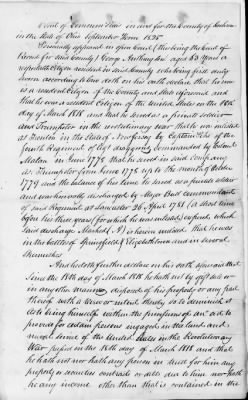 Court of Common Pleas in and for the County of
in the State of Ohio September Term 1825
Personally appeared in open Court (this being the Court of
Record for said County) George aged 63 years a
resident Citizen resident in said County who being first duly
sworn according to law doth on his oath declare that he now
is a resident Citizen of the County and State aforesaid and
that he was a resident Citizen of the United States on the 18th
day of March 1818 and that he served as a private soldier
and Trumpeter in the revolutionary war that he was enlisted
at in the State of New Jersey by Captain of the
fourth Regiment of light dragoons commanded by Colonel
in June 1778 that he served in said company
as Trumpeter from June 1778 up to the month of
1779 and the balance of his time he served as a private soldier
and was honorably discharged by Major commandant
of said Regiment at Lancaster Pa April 1781 (a short time
before his three years (for which he was enlisted) expired which
said discharge Marked (A) is herein enclosed that he was
in the battles of Springfield & Elizabethtown and in several
skirmishes
And he doth further declare on his oath aforesaid that
Since the 18th day of March 1818 he hath not by gift sale or
in any other manner disposed of his property or any part
thereof with a view or intent thereby so to diminish it
as to bring himself within the provisions of an act to
provide for certain persons engaged in the land and
naval service of the United States in the Revolutionary
War passed on the 18th day of March 1818 and that
he hath not nor hath any person in trust for him any
property or securities contracts or debts due to him nor hath
he any income other than that is contained in the